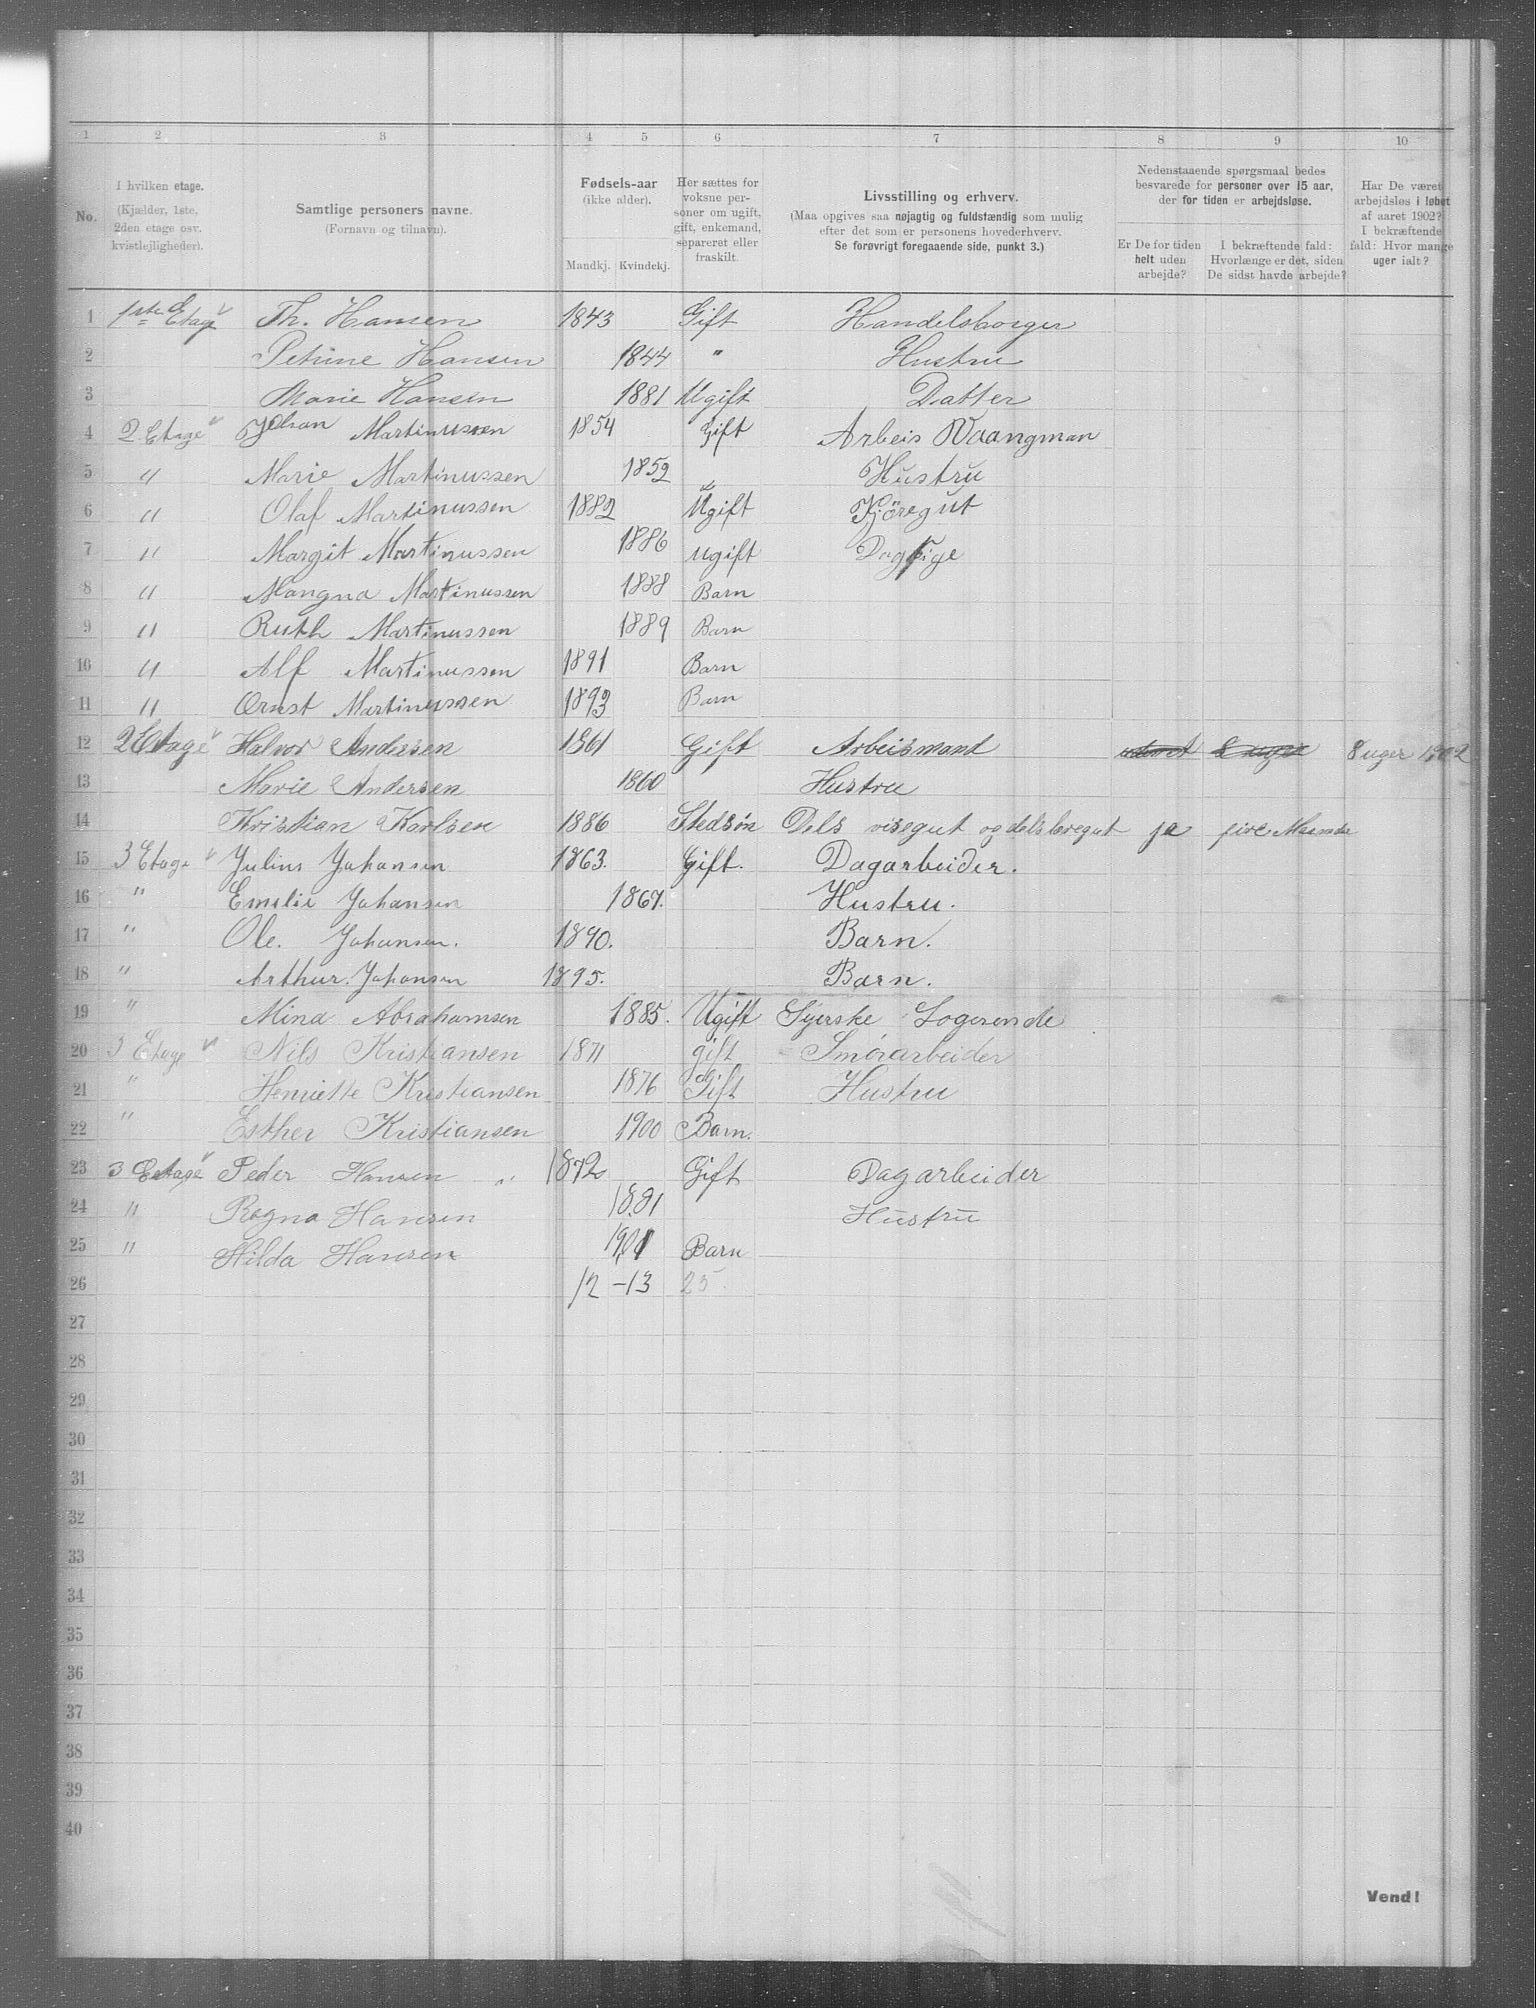 1 2 3 4 5 6 7 8 9 10
No.
I hvilken etage.
(Kjælder, 1ste,
2den etage osv.
kvistlejligheder).
Samtlige personers navne.
(Fornavn og tilnavn).
Fødsels-aar
(ikke alder).
Mandkj. Kvindekj.
Her sættes for
voksne per-
soner om ugift,
gift, enkemand,
separeret eller
fraskilt.
Livsstilling og erhverv.
(Maa opgives saa nøjagtig og fuldstændig som mulig
efter det som er personens hovederhverv.
Se forøvrigt foregaaende side, punkt 3.)
Nedenstaaende spørgsmaal bedes
besvarede for personer over 15 aar,
der for tiden er arbejdsløse.
Er De for tiden
helt uden
arbejde?
I bekræftende fald:
Hvorlænge er det, siden
De sidst havde arbejde?
Har De været
arbejdsløs i løbet
af aaret 1902?
I bekræftende
fald: Hvor mange
uger ialt?
1 1ste Etage Th. Hansen 1843 Gift Handelsborger
2 Petrine Hansen 1844 " Hustru
3 Marie Hansen 1881 Ugift Datter
4 2 Etage Johan Martinussen 1854 Gift Arbeis Vaangman
5 " Marie Martinussen 1852 " Hustru
6 " Olaf Martinussen 1882 Ugift Kjöregut
7 " Margit Martinussen 1886 ugift Dagpige
8 " Mangna Martinussen 1888 Barn
9 " Ruth Martinussen 1889 Barn
10 " Alf Martinussen 1891 Barn
11 " Ernst Martinussen 1893 Barn
12 2 Etage Halvor Andersen 1861 Gift Arbeismand 8 uger 8 uger 1902
13 Marie Andersen 1860 Hustru
14 Kristian Karlsen 1886 Stedsön Dels visegut og dels læregut ja fire Maander
15 3 Etage Julius Johansen 1863. Gift. Dagarbeider.
16 " Emelie Johansen 1867. Hustru.
17 " Ole. Johansen. 1890. Barn.
18 " Arthur. Johansen 1895. Barn.
19 " Mina Abrahamsen 1885. Ugift Syerske Logerende
20 3 Etage Nils Kristiansen 1871 gift Smörarbeider
21 " Henriette Kristiansen 1876 Gift Hustru
22 " Esther Kristiansen 1900 Barn.
23 3 Etage Peder Hansen " 1872 Gift Dagarbeider
24 " Ragna Hansen 1881 Hustru
25 " Hilda Hansen 1901 Barn
26 12 - 13 25
27
28
29
30
31
32
33
34
35
36
37
38
39
40
Vend!